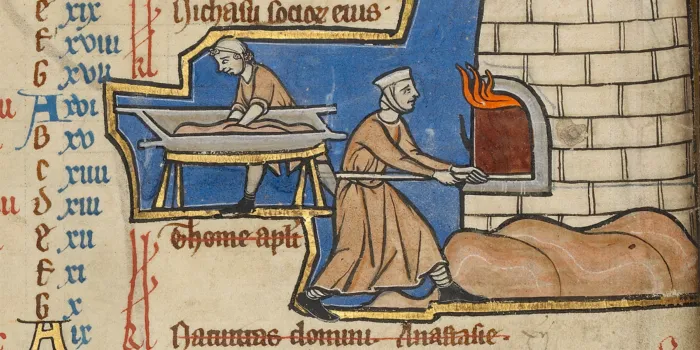 e xix Nichasii socior eius.
f xviii
G xvii
A xvi
B xv
c xiiii
d xiii
e xii Thome apli
f xi
G x
A ix Natiuitas domini. Anastasie.